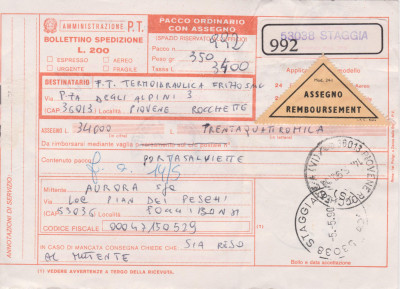 AMMINISTRAZIONE P.T.
BOLLETTINO SPEDIZIONE
L. 200
ESPRESSO AEREO
URGENTE FRAGILE
PACCO ORDINARIO
CON ASSEGNO
(SPAZIO RISERVATO
Pacco n.
Peso gr. 350
Tassa L. 3400
53038 STAGGIA
992
Mod. 244
ASSEGNO
REMBOURSEMENT
DESTINATARIO F.T. TERMOIDRAULICA
Via P.ZA DEGLI ALPINI 3
CAP 36013 Località PIOVENE ROCCHETTE
ASSEGNO L. 34000 TRENTAQUATTROMILA
(in cifre)
Da rimborsare mediante
Contenuto pacco PORTASALVIETTE
Mittente AURORA
Via LOC PIAN DEI PESCHI
CAP 53036 Località POGGIBONSI
CODICE FISCALE 00047150529
IN CASO DI MANCATA CONSEGNA CHIEDE CHE SIA RESO
AL MITTENTE
(1) VEDERE AVVERTENZE A TERGO DELLA RICEVUTA.
Bollo a data accettazione
ANNOTAZIONI DI SERVIZIO
53038 STAGGIA
36013 PIOVENE